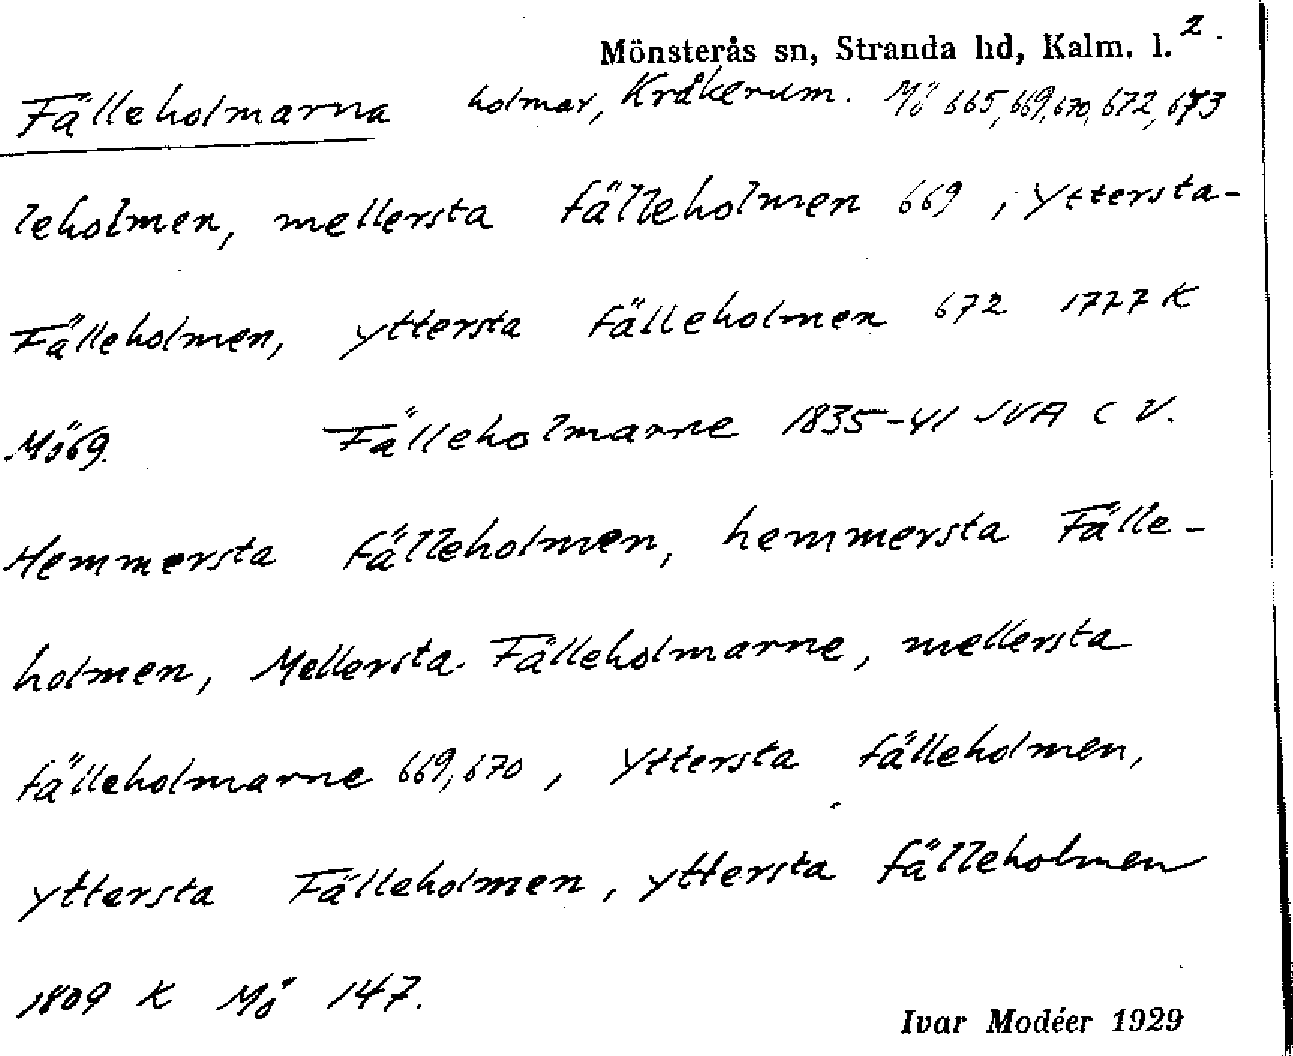 Mönsterås sn, Stranda hd, Kalm. l. 2.
Fälleholmarna holmar, Kråkerum. Mö 665, 669, 670, 672, 673
leholmen, mellersta fälleholmen 669, Yttersta-
Fälleholmen, yttersta fälleholmen 672 1777 K
Mö69. Fälleholmarne 1835-41 JVA C V.
Hemmersta fälleholmen, hemmersta Fälle-
holmen, Mellersta Fälleholmarne, mellersta
fälleholmarne 669, 670, Yttersta fälleholmen,
yttersta Fälleholmen, yttersta fälleholmen
1809 K Mö 147.
Ivar Modéer 1929